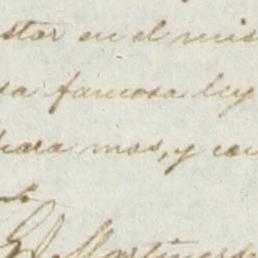 star en el mis
sa famosa ley
para mas, y con
Martinez